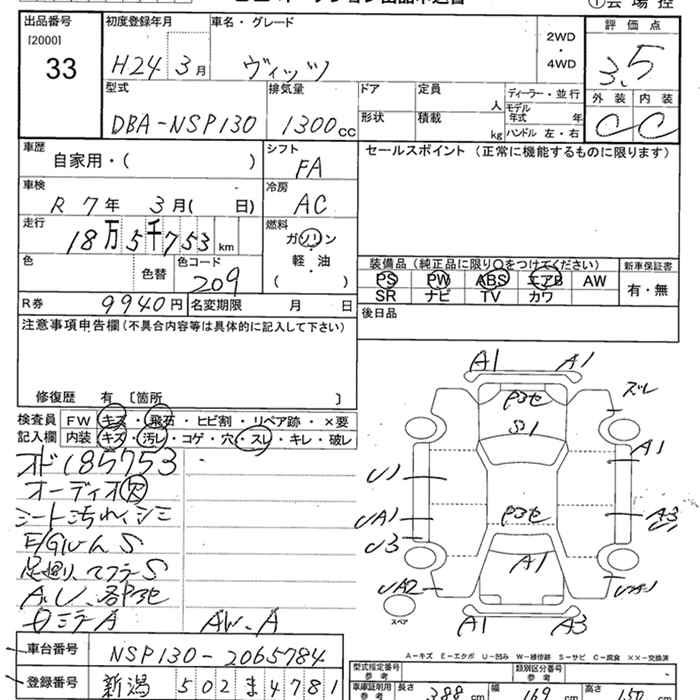 出品番号
[2000]
33
初度登録年月 車名・グレード
H24 3月 ヴィッツ
2WD
・
4WD
評価点
3.5
外装 内装
C C
型式 排気量 ドア 定員 ディーラー・並行
DBA-NSP130 1300cc 人 モデル年式 年
形状 積載 kg ハンドル 左・右
車歴 シフト セールスポイント (正常に機能するものに限ります)
自家用・( ) FA
車検 冷房
R 7年 3月( 日) AC
走行 燃料
18万5千753km ガソリン
軽・油
( )
色 色替 色コード
209
装備品 (純正品に限り○をつけてください) 新車保証書
PS PW ABS エアB AW 有・無
SR ナビ TV カワ
R券 9940円 名変期限 月 日
後日品
注意事項申告欄 (不具合内容等は具体的に記入して下さい)
修復歴 有 〔箇所 〕
検査員 FW キズ・飛石・ヒビ割・リペア跡・×要
記入欄 内装 キズ・汚レ・コゲ・穴・スレ・キレ・破レ
オド185753
オーディオ欠
シート汚れ、シミ
E/Gルーム S
足廻り、マフラーS
A.U、各部
ロミラA AW、A
A1 A1
ズレ
S1
A1
U1
UA1
A3
U1
U3
A1
UA2
UA1
A1 A3
スペア
A-キズ E-エクボ U-凹み W-補修跡 S-サビ C-腐食 XX-交換済
車台番号 NSP130-2065784
登録番号 新潟 502 ま 4781
型式指定番号 参考 類別区分番号 参考
車庫証明用 参考 長さ 388cm 幅 169cm 高さ 150cm